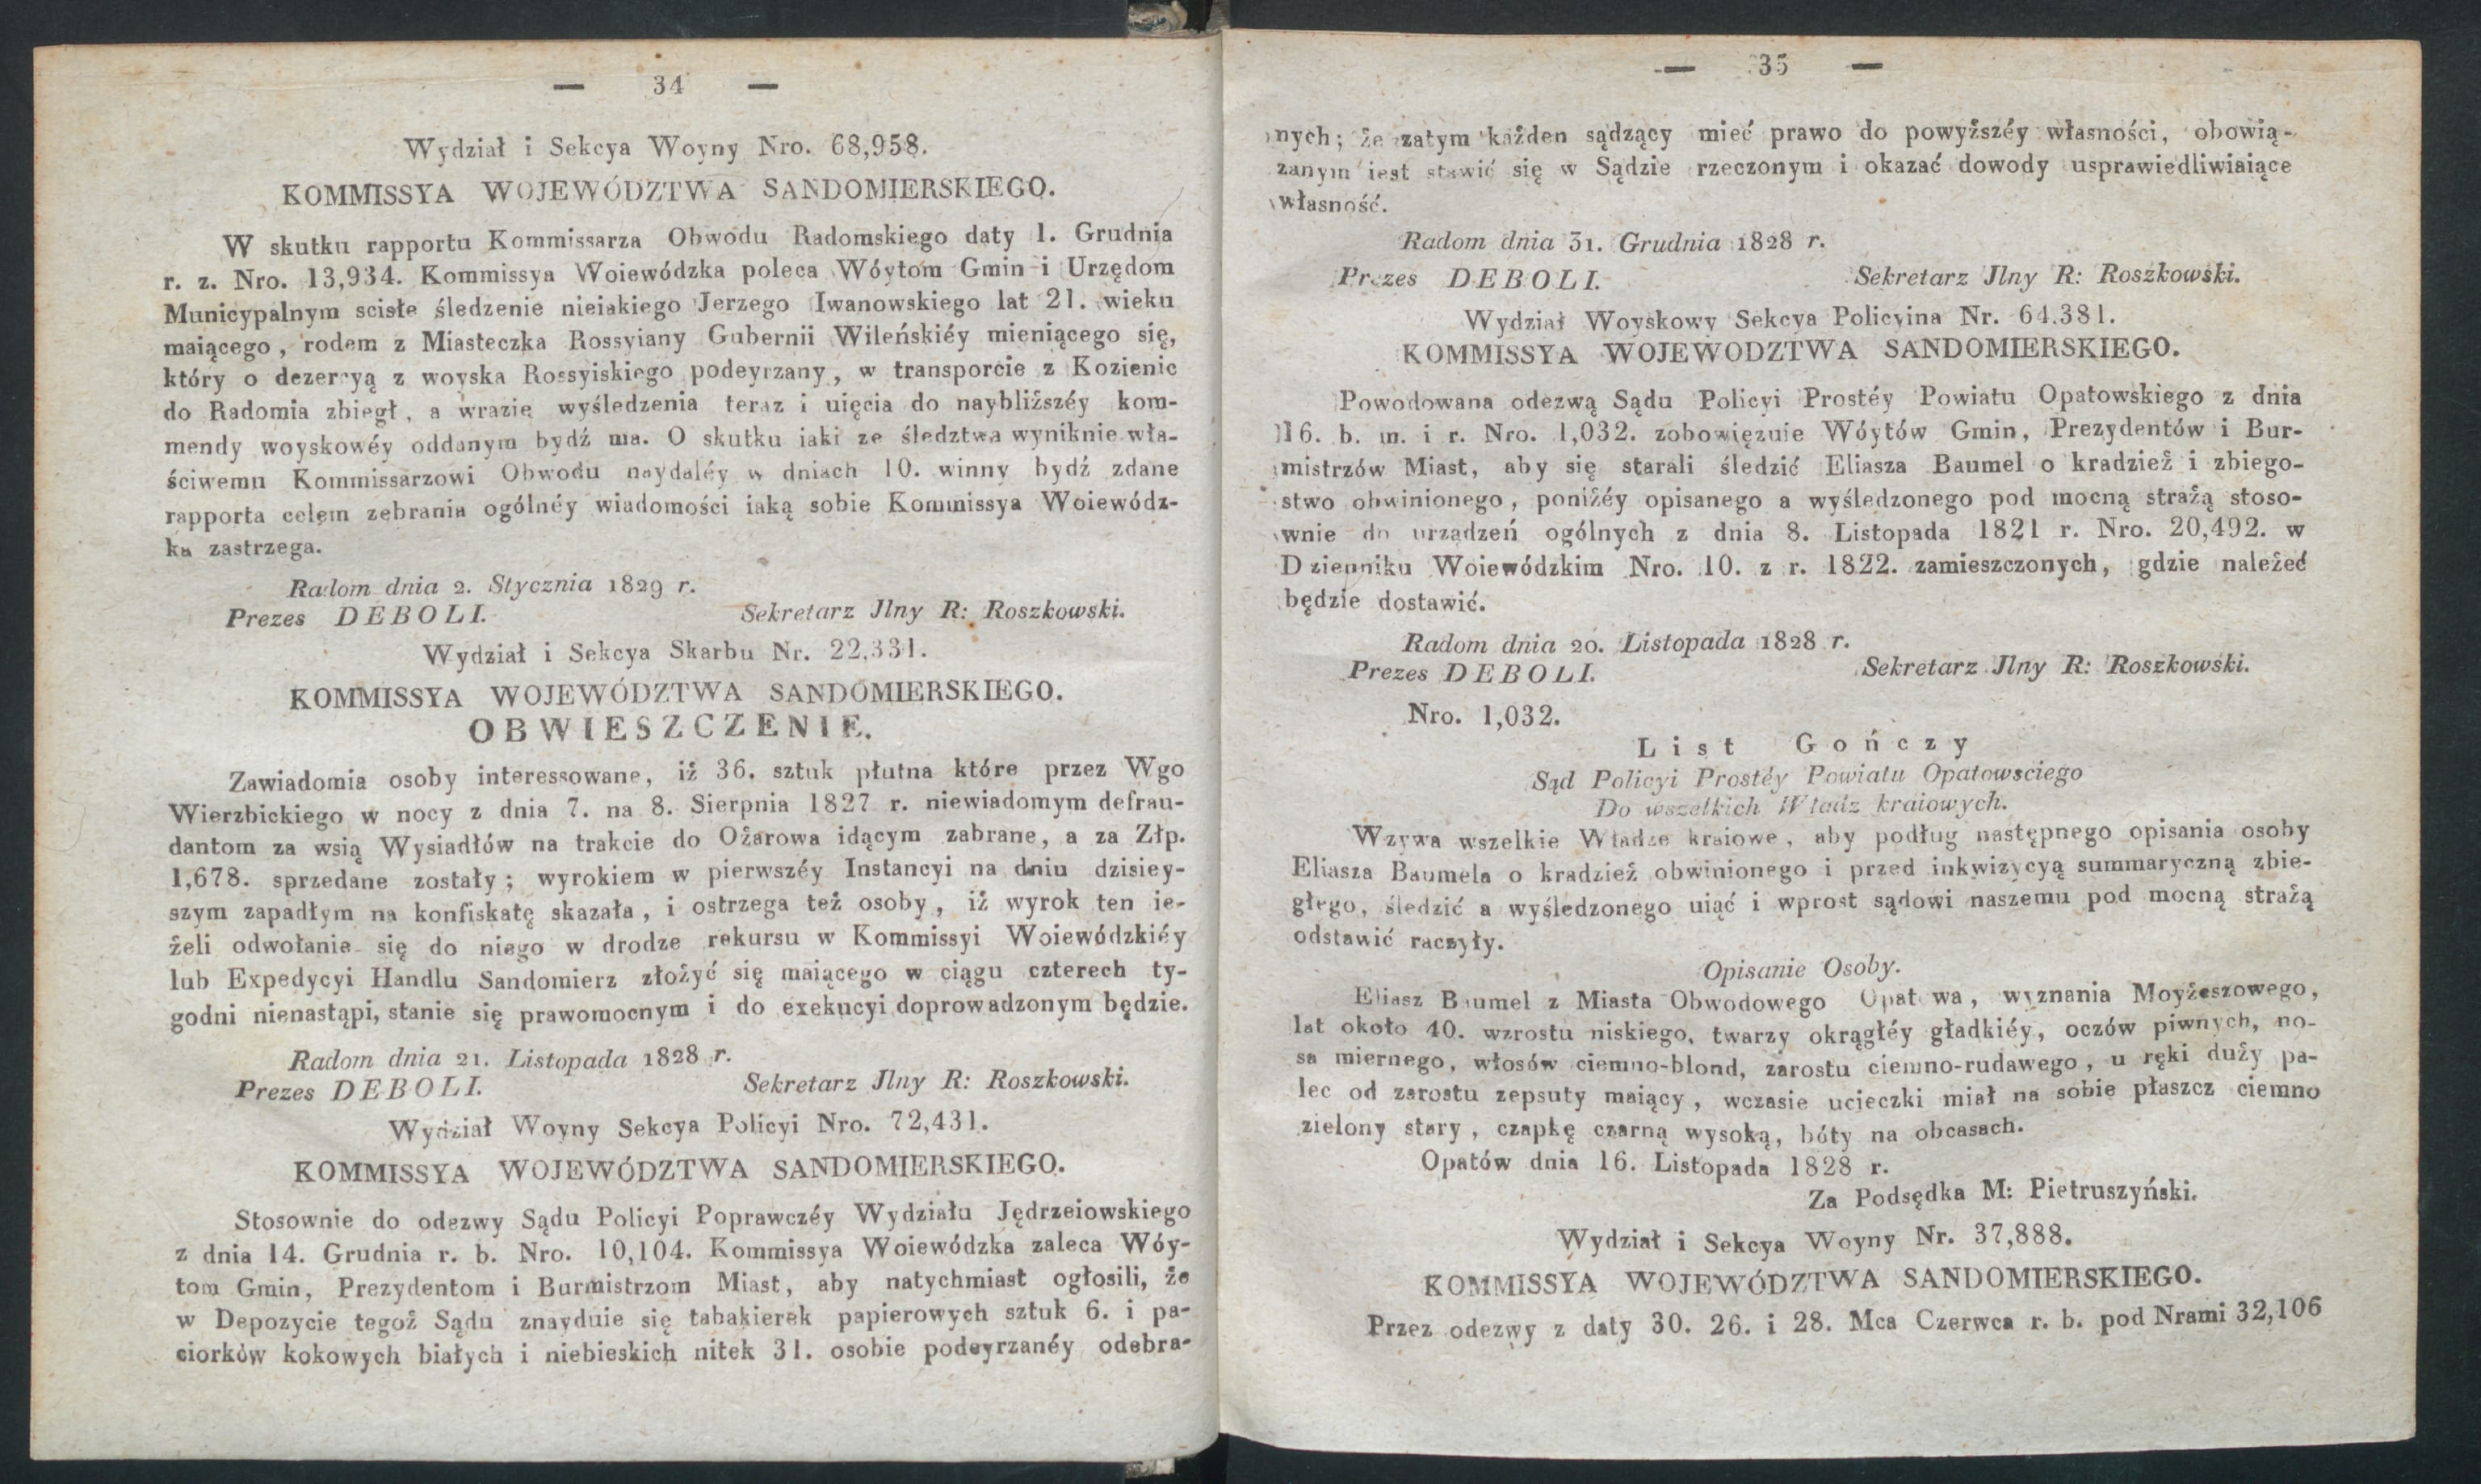 — 34 —
Wydział i Sekcya Woyny Nro. 68,958.
KOMMISSYA WOJEWÓDZTWA SANDOMIERSKIEGO.
W skutku rapportu Kommissarza Obwodu Radomskiego daty 1. Grudnia
r. z. Nro. 13,934. Kommissya Woiewódzka poleca Wóytom Gmin i Urzędom
Municypalnym scisłe śledzenie nieiakiego Jerzego Iwanowskiego lat 21. wieku
maiącego, rodem z Miasteczka Rossyiany Gubernii Wileńskiéy mieniącego się,
który o dezercyą z woyska Rossyiskiego podeyrzany, w transporcie z Kozienic
do Radomia zbiegł, a wrazie wyśledzenia teraz i uięcia do naybliższéy kom-
mendy woyskowéy oddanym bydź ma. O skutku iaki ze śledztwa wyniknie wła-
ściwemu Kommissarzowi Obwodu naydaléy w dniach 10. winny bydź zdane
rapporta celem zebrania ogólnéy wiadomości iaką sobie Kommissya Woiewódz-
ka zastrzega.
Radom dnia 2. Stycznia 1829 r.
Prezes DEBOLI. Sekretarz Jlny R: Roszkowski.
Wydział i Sekcya Skarbu Nr. 22,331.
KOMMISSYA WOJEWÓDZTWA SANDOMIERSKIEGO.
OBWIESZCZENIE.
Zawiadomia osoby interessowane, iż 36. sztuk płutna które przez Wgo
Wierzbickiego w nocy z dnia 7. na 8. Sierpnia 1827 r. niewiadomym defrau-
dantom za wsią Wysiadłów na trakcie do Ożarowa idącym zabrane, a za Złp.
1,678. sprzedane zostały; wyrokiem w pierwszéy Instancyi na dniu dzisiey-
szym zapadłym na konfiskatę skazała, i ostrzega też osoby, iż wyrok ten ie-
żeli odwołanie się do niego w drodze rekursu w Kommissyi Woiewódzkiéy
lub Expedycyi Handlu Sandomierz złożyć się maiącego w ciągu czterech ty-
godni nienastąpi, stanie się prawomocnym i do exekucyi doprowadzonym będzie.
Radom dnia 21. Listopada 1828 r.
Prezes DEBOLI. Sekretarz Jlny R: Roszkowski.
Wydział Woyny Sekcya Policyi Nro. 72,431.
KOMMISSYA WOJEWÓDZTWA SANDOMIERSKIEGO.
Stosownie do odezwy Sądu Policyi Poprawczéy Wydziału Jędrzeiowskiego
z dnia 14. Grudnia r. b. Nro. 10,104. Kommissya Woiewódzka zaleca Wóy-
tom Gmin, Prezydentom i Burmistrzom Miast, aby natychmiast ogłosili, że
w Depozycie tegoż Sądu znayduie się tabakierek papierowych sztuk 6. i pa-
ciorków kokowych białych i niebieskich nitek 31. osobie podeyrzanéy odebra-
— 35 —
nych; że zatym każden sądzący mieć prawo do powyższéy własności, obowią-
zanym iest stawić się w Sądzie rzeczonym i okazać dowody usprawiedliwiaiące
własność.
Radom dnia 31. Grudnia 1828 r.
Prezes DEBOLI. Sekretarz Jlny R: Roszkowski.
Wydział Woyskowy Sekcya Policyina Nr. 64.381.
KOMMISSYA WOJEWODZTWA SANDOMIERSKIEGO.
Powodowana odezwą Sądu Policyi Prostéy Powiatu Opatowskiego z dnia
16. b. m. i r. Nro. 1,032. zobowięzuie Wóytów Gmin, Prezydentów i Bur-
mistrzów Miast, aby się starali śledzić Eliasza Baumel o kradzież i zbiego-
stwo obwinionego, poniżéy opisanego a wyśledzonego pod mocną strażą stoso-
wnie do urządzeń ogólnych z dnia 8. Listopada 1821 r. Nro. 20,492. w
Dzienniku Woiewódzkim Nro. 10. z r. 1822. zamieszczonych, gdzie należeć
będzie dostawić.
Radom dnia 20. Listopada 1828 r.
Prezes DEBOLI. Sekretarz Jlny R: Roszkowski.
Nro. 1,032.
List Gończy
Sąd Policyi Prostéy Powiatu Opatowsciego
Do wszelkich Władz kraiowych.
Wzywa wszelkie Władze kraiowe, aby podług następnego opisania osoby
Eliasza Baumela o kradzież obwinionego i przed inkwizycyą summaryczną zbie-
głego, śledzić a wyśledzonego uiąć i wprost sądowi naszemu pod mocną strażą
odstawić raczyły.
Opisanie Osoby.
Eliasz Baumel z Miasta Obwodowego Opatowa, wyznania Moyżeszowego,
lat około 40. wzrostu niskiego, twarzy okrągłéy gładkiéy, oczów piwnych, no-
sa miernego, włosów ciemno-blond, zarostu ciemno-rudawego, u ręki duży pa-
lec od zarostu zepsuty maiący, wczasie ucieczki miał na sobie płaszcz ciemno
zielony stary, czapkę czarną wysoką, bóty na obcasach.
Opatów dnia 16. Listopada 1828 r.
Za Podsędka M: Pietruszyński.
Wydział i Sekcya Woyny Nr. 37,888.
KOMMISSYA WOJEWÓDZTWA SANDOMIERSKIEGO.
Przez odezwy z daty 30. 26. i 28. Mca Czerwca r. b. pod Nrami 32,106